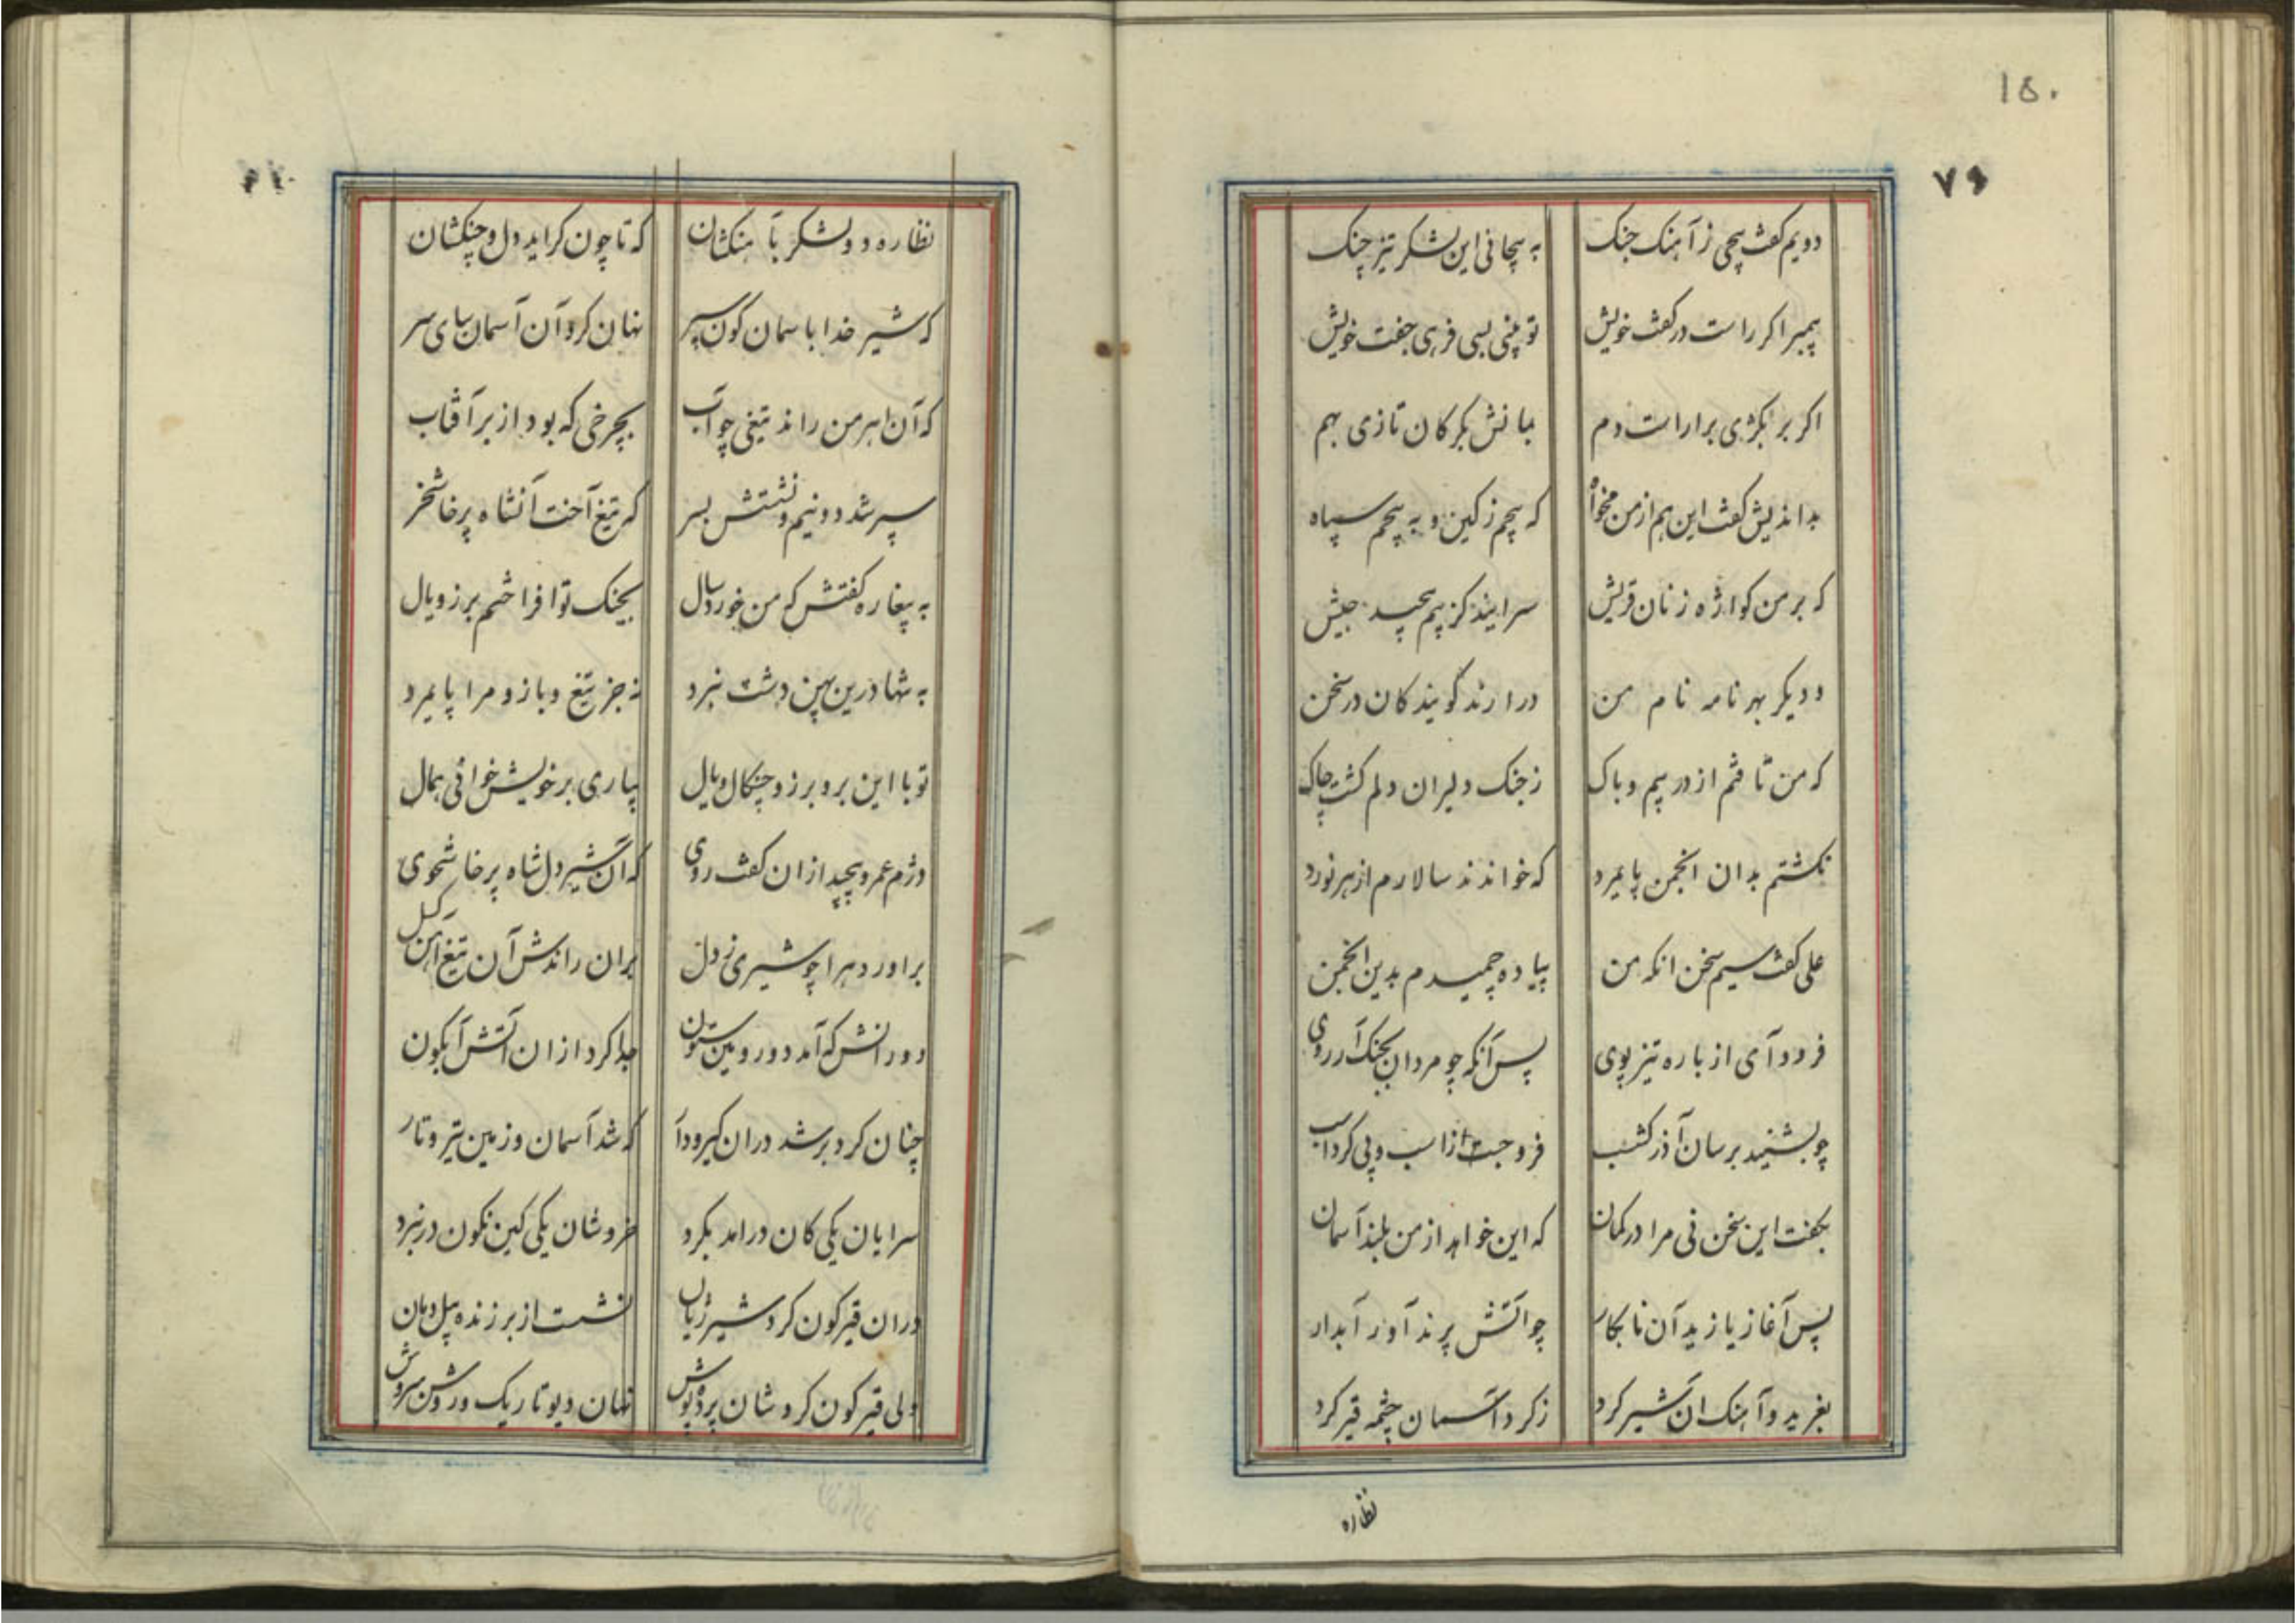 ۱۵۰
۷۶
دویم کفت پیچی ز آهنک جنک به پیچانی این لشکر تیز چنک
پیمبر اکر راست در کفت خویش تو بینی بسی فرهی جفت خویش
اکر بر بکژی برآراست دم بمانش بکرکان تازی بهم
بداندیش کفت این هم از من مخواه که پیچم ز کین و به پیچم سپاه
که بر من کواژه زنان قریش سرایند کز بیم پیچید جیش
و دیکر بهر نامه نام من درارند کویندکان در سخن
که من تافتم از در بیم و باک ز جنک دلیران دلم کشت چاک
نکشتم بدان انجمن پایمرد که خواندند سالارم از هر نورد
علی کفت سیم سخن انکه من پیاده چمیدم بدین انجمن
فرود آی از باره تیز پوی پس آنکه چو مردان بجنک آر روی
چو بشنید برسان آذرکشب فرو جست از اسب و پی کرد اسب
بکفت این سخن نی مرا در کمان که این خواهد از من بلند آسمان
پس آغاز یازید آن نابکار چو اتش پرند آور آبدار
بغرید و آهنک ان شیر کرد ز کرد آسمان چشمه قیر کرد
نظاره
نظاره دو لشکر بآهنکشان که تا چون کراید دل و چنکشان
که شیر خدا باسمان کون سپر نهان کرد آن آسمان سای سر
که آن اهرمن راند تیغی چو آب بچرخی که بود از بر آفتاب
سپر شد دو نیم و نشستش بسر که تیغ آخت آنشاه پرخاشخر
به پیغاره کفتش که من خوردسال بجنک تو افراختم برز و یال
به تنها درین پهن دشت نبرد نه جز تیغ و بازو مرا پایمرد
تو با این بر و برز و چنکال و یال بیاری بر خویش خوانی همال
دژم عمرو پیچید ازان کفت روی که آن شیردل شاه پرخاشجوی
براورد هرا چو شیری ز دل بران راندش آن تیغ آهن کسل
دو رانش که آمد دو رویین ستون جدا کرد ازان آتش آبکون
چنان کرد بر شد دران کیر و دار که شد آسمان و زمین تیره و تار
سرایان یکی کان درامد بکرد خروشان یکی کین نکون در نبرد
دران قیرکون کرد شیر ژیان نشست از بر زنده پیل دمان
ولی قیرکون کرد شان پرده پوش نهان دیو تاریک و روشن سروش